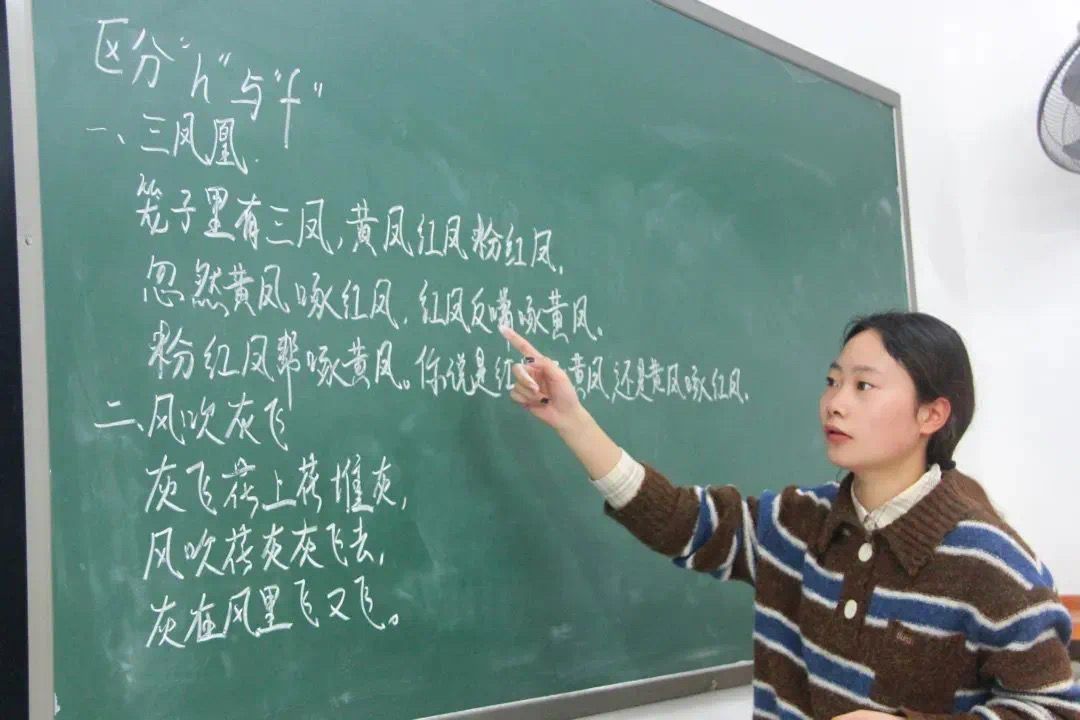 区分“h”与“f”
一、三凤凰.
笼子里有三凤,黄凤红凤粉红凤,
忽然黄凤啄红凤,红凤反嘴啄黄凤。
粉红凤帮啄黄凤。你说是红 黄凤,还是黄凤啄红凤.
二、风吹灰飞
灰飞花上花堆灰,
风吹花灰灰飞去,
灰在风里飞又飞。